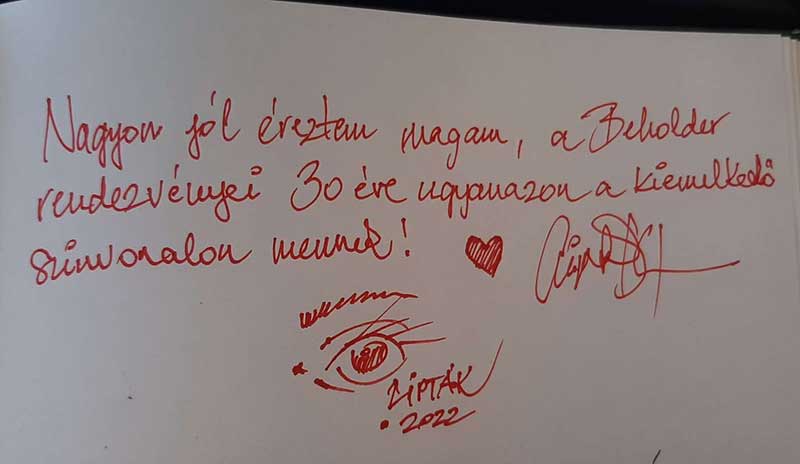 Nagyon jól éreztem magam, a Beholder
rendezvényei 30 éve ugyanazon a kiemelkedő
színvonalon mennek!
LIPTÁK
2022